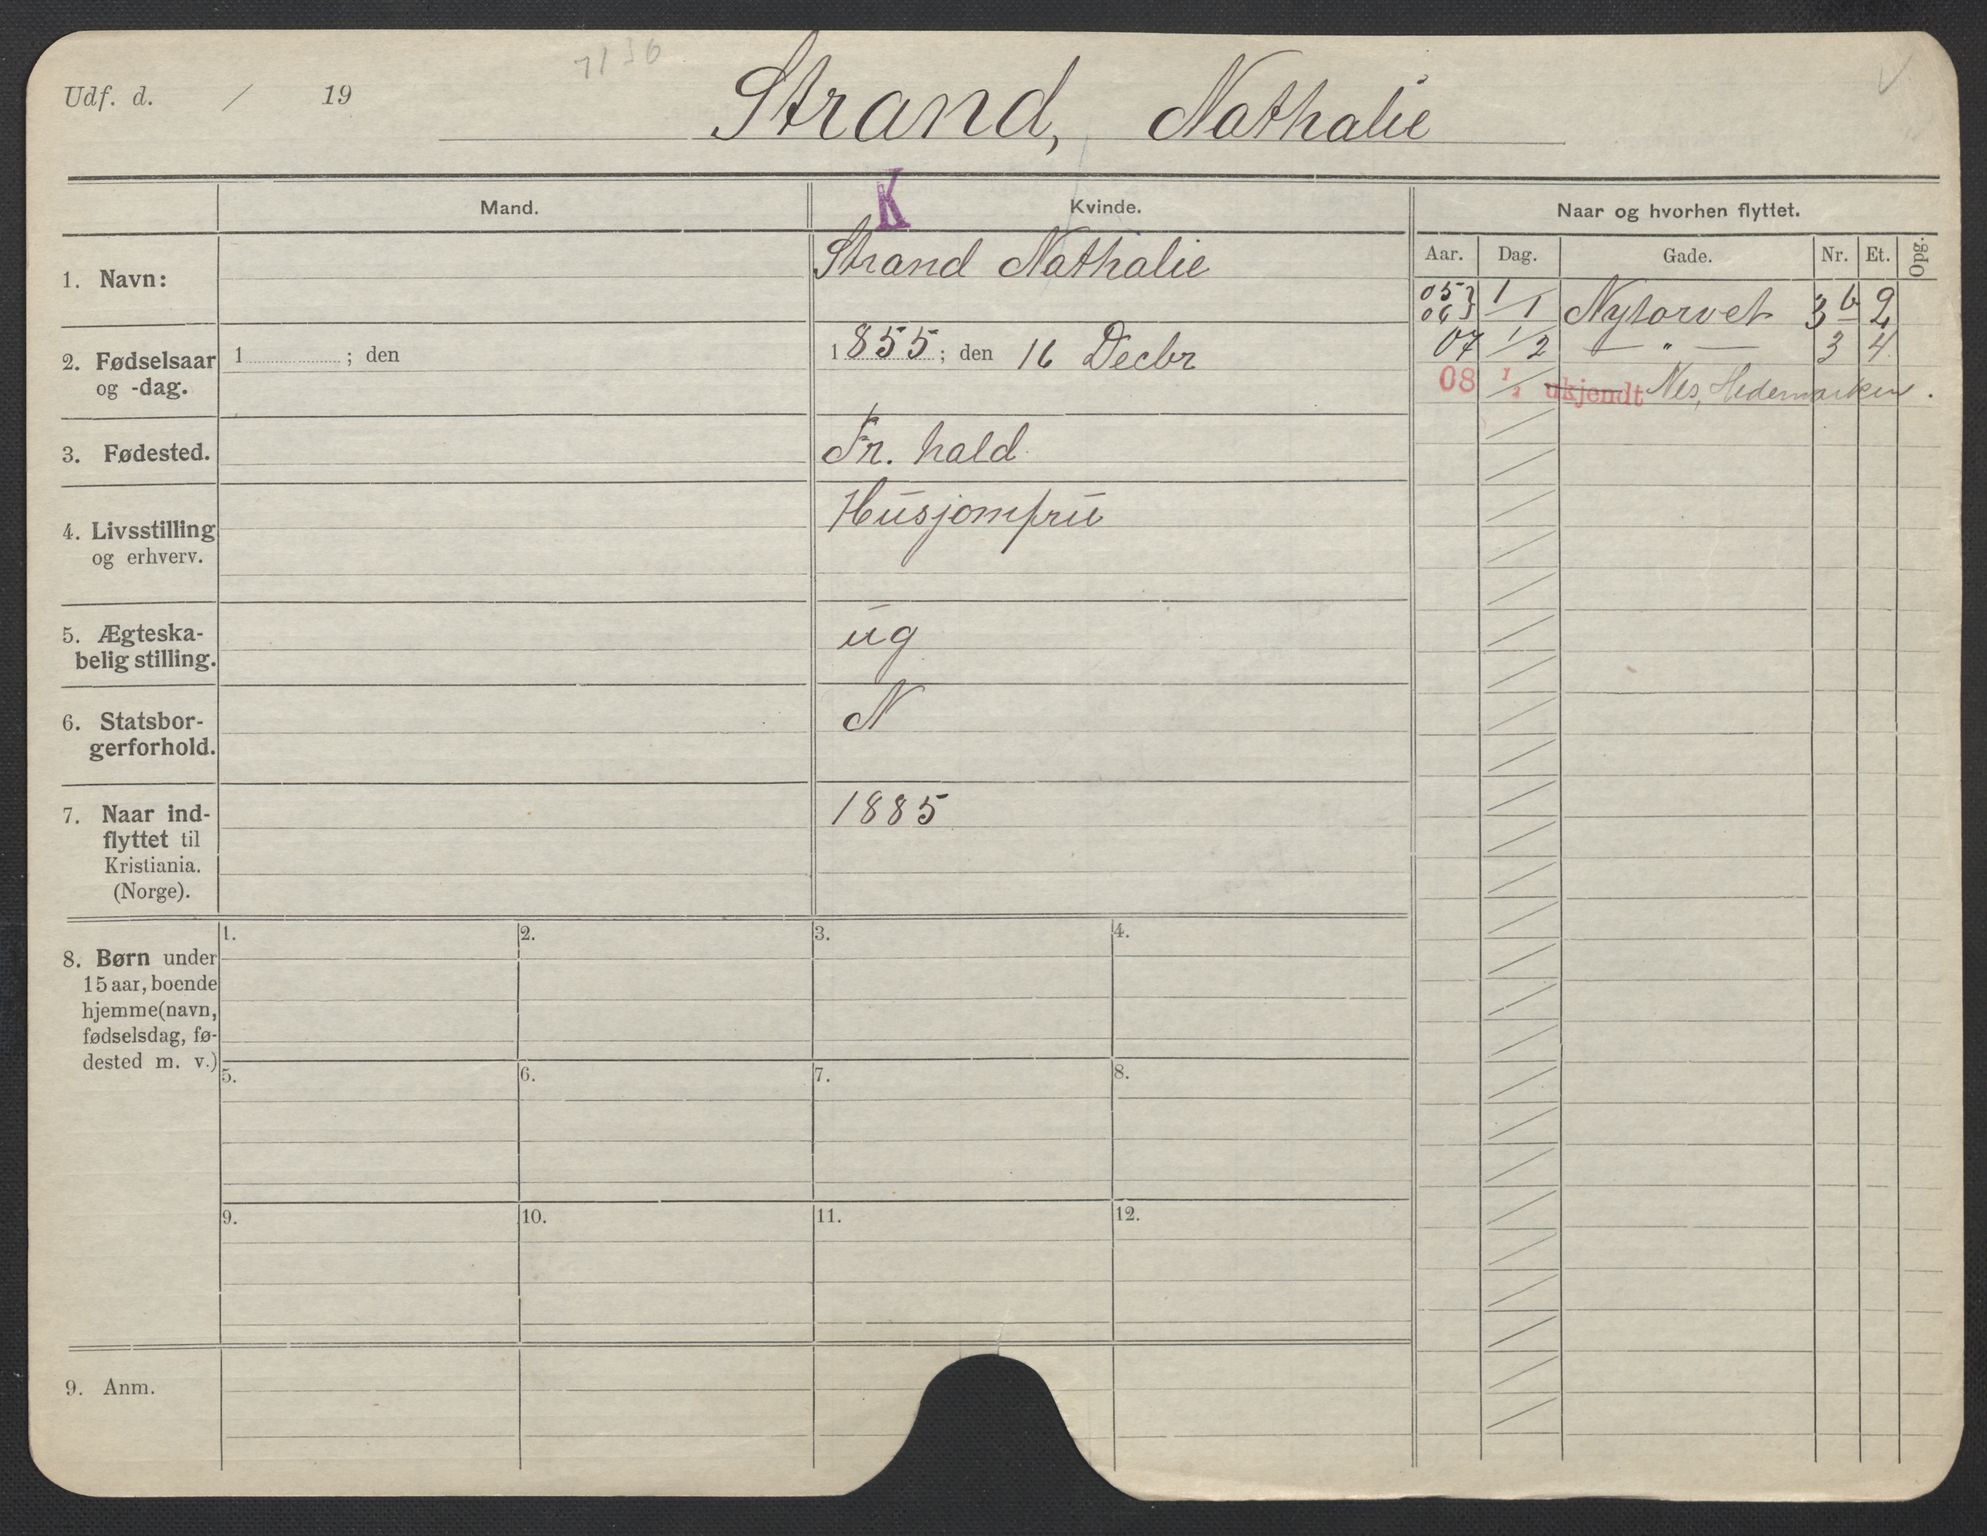 Udf. d. / 19
Strand, Nathalie
K
Mand.
Kvinde.
Naar og hvorhen flyttet.
Aar. Dag. Gade. Nr. Et. Opg.
1. Navn:
Strand Nathalie
05 } 1/1 Nytorvet 3b 2
06 }
07 1/2 — " — 3 4
08 1/2 ukjendt Nes, Hedemarken.
2. Fødselsaar
og -dag.
1 ; den
1855; den 16 Decbr
3. Fødested.
Fr. hald
4. Livsstilling
og erhverv.
Husjomfru
5. Ægteska-
belig stilling.
ug
6. Statsbor-
gerforhold.
N
7. Naar ind-
flyttet til
Kristiania.
(Norge).
1885
8. Børn under
15 aar, boende
hjemme (navn,
fødselsdag, fø-
dested m. v.)
1. 2. 3. 4.
5. 6. 7. 8.
9. 10. 11. 12.
9. Anm.